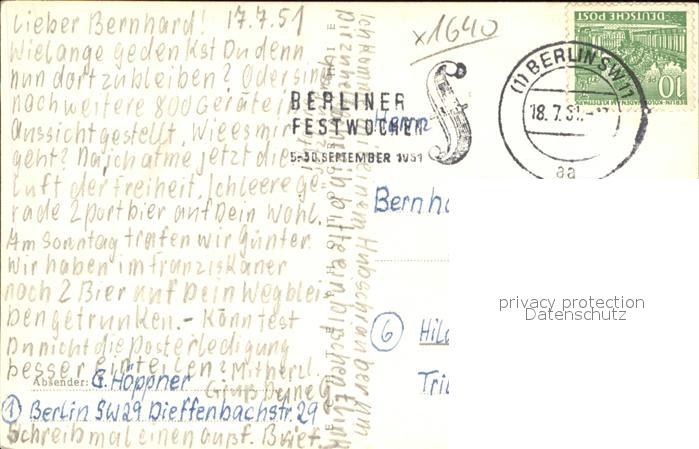 Lieber Bernhard! 17.7.51
Wielange gedenkst Du denn
nun dortzubleiben? Oder sind
noch weitere 800 Geräte in
aussicht gestellt. Wie es mir
geht? Na, ich atme jetzt die
Luft der Freiheit. Ich leere ge-
rade 2 Portbier auf Dein Wohl.
Am Sonntag trafen wir Günter.
Wir haben im Franziskaner
noch 2 Bier auf Dein Wegblei-
ben getrunken. - Könntest
Du nicht die Posterledigung
besser einteilen? Mit herzl.
Gruß Deine G.
Schreib mal einen ausf. Brief.
Absender: G. Höppner
1 Berlin SW 29 Dieffenbachstr. 29
Ich komme
einem Hubschrauber um
Dir zu
bitte ein bischen Flink
x1640
BERLINER
FESTWOCHEN
5.-30. SEPTEMBER 1951
(1) BERLIN SW 11
18.7.51.
aa
DEUTSCHE POST
10
BERLIN
Herrn
Bernh
6 Hil
Tri
privacy protection
Datenschutz